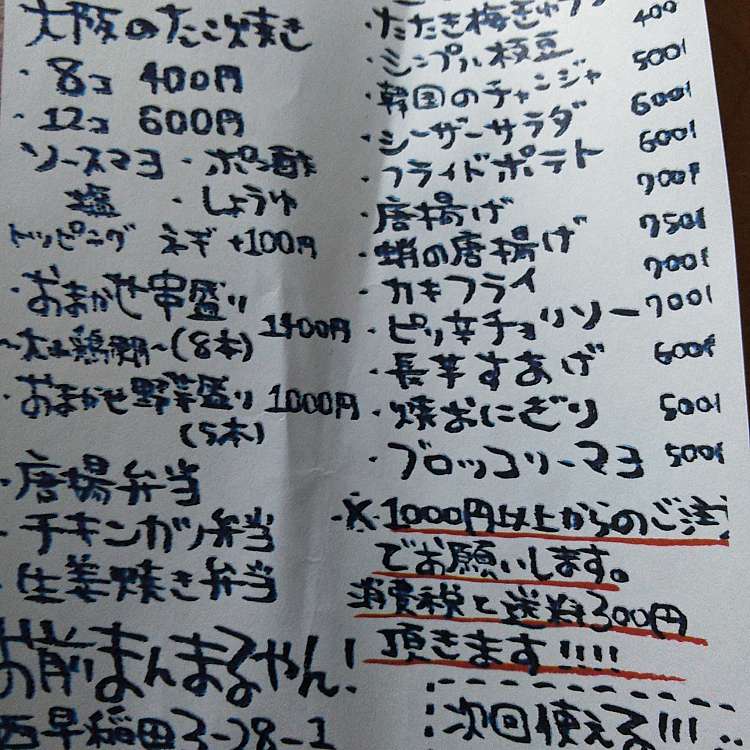 大阪のたこ焼き
・8コ 400円
・12コ 600円
ソースマヨ・ポン酢
塩 ・しょうゆ
トッピング ネギ+100円
・おまかせ串盛り
1400円
(8本)
・おまかせ野菜盛り 1000円
(5本)
・唐揚弁当
・チキンカツ弁当
・生姜焼き弁当
お前まんまるやん!
西早稲田3-28-1
・たたき梅きゅう 400
・シンプル枝豆 500
・韓国のチャンジャ 600
・シーザーサラダ 600
・フライドポテト 700
・唐揚げ 750
・蛸の唐揚げ 700
・カキフライ 700
・ピリ辛チョリソー 600
・長芋すあげ 500
・焼おにぎり 500
・ブロッコリーマヨ
※1000円以上からのご注
でお願いします。
消費税と送料300円
頂きます!!!!
次回使える!!!